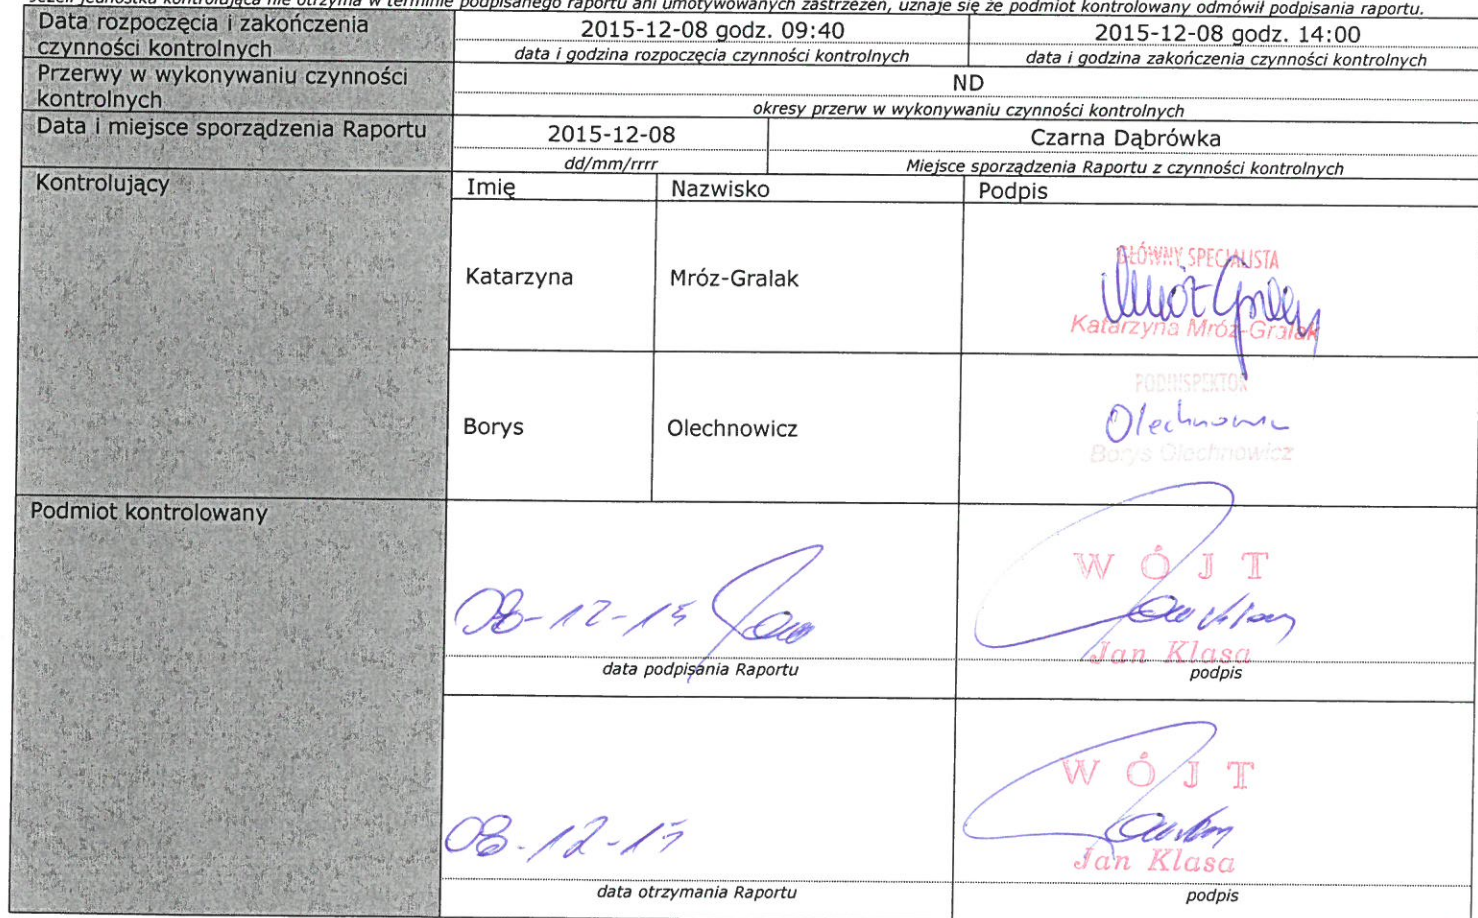 Jeżeli jednostka kontrolująca nie otrzyma w terminie podpisanego raportu ani umotywowanych zastrzeżeń, uznaje się że podmiot kontrolowany odmówił podpisania raportu.
Data rozpoczęcia i zakończenia
czynności kontrolnych
2015-12-08 godz. 09:40
data i godzina rozpoczęcia czynności kontrolnych
2015-12-08 godz. 14:00
data i godzina zakończenia czynności kontrolnych
Przerwy w wykonywaniu czynności
kontrolnych
ND
okresy przerw w wykonywaniu czynności kontrolnych
Data i miejsce sporządzenia Raportu
2015-12-08
dd/mm/rrrr
Czarna Dąbrówka
Miejsce sporządzenia Raportu z czynności kontrolnych
Kontrolujący
Imię
Nazwisko
Podpis
Katarzyna
Mróz-Gralak
GŁÓWNY SPECJALISTA
Katarzyna Mróz-Gralak
Borys
Olechnowicz
PODINSPEKTOR
Borys Olechnowicz
Podmiot kontrolowany
08-12-15
data podpisania Raportu
WÓJT
Jan Klasa
podpis
08-12-15
data otrzymania Raportu
WÓJT
Jan Klasa
podpis